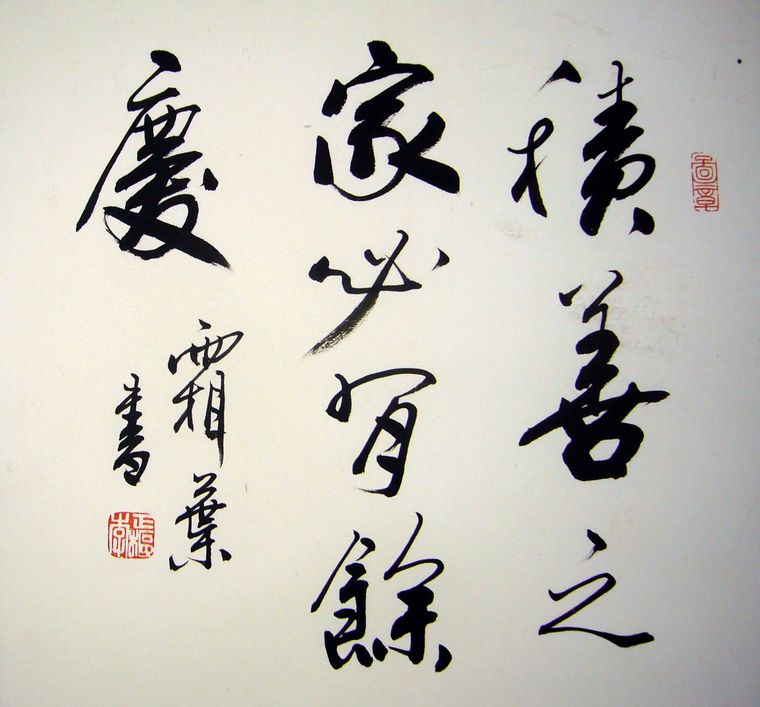 積善之
家必有餘
慶
霜葉
書